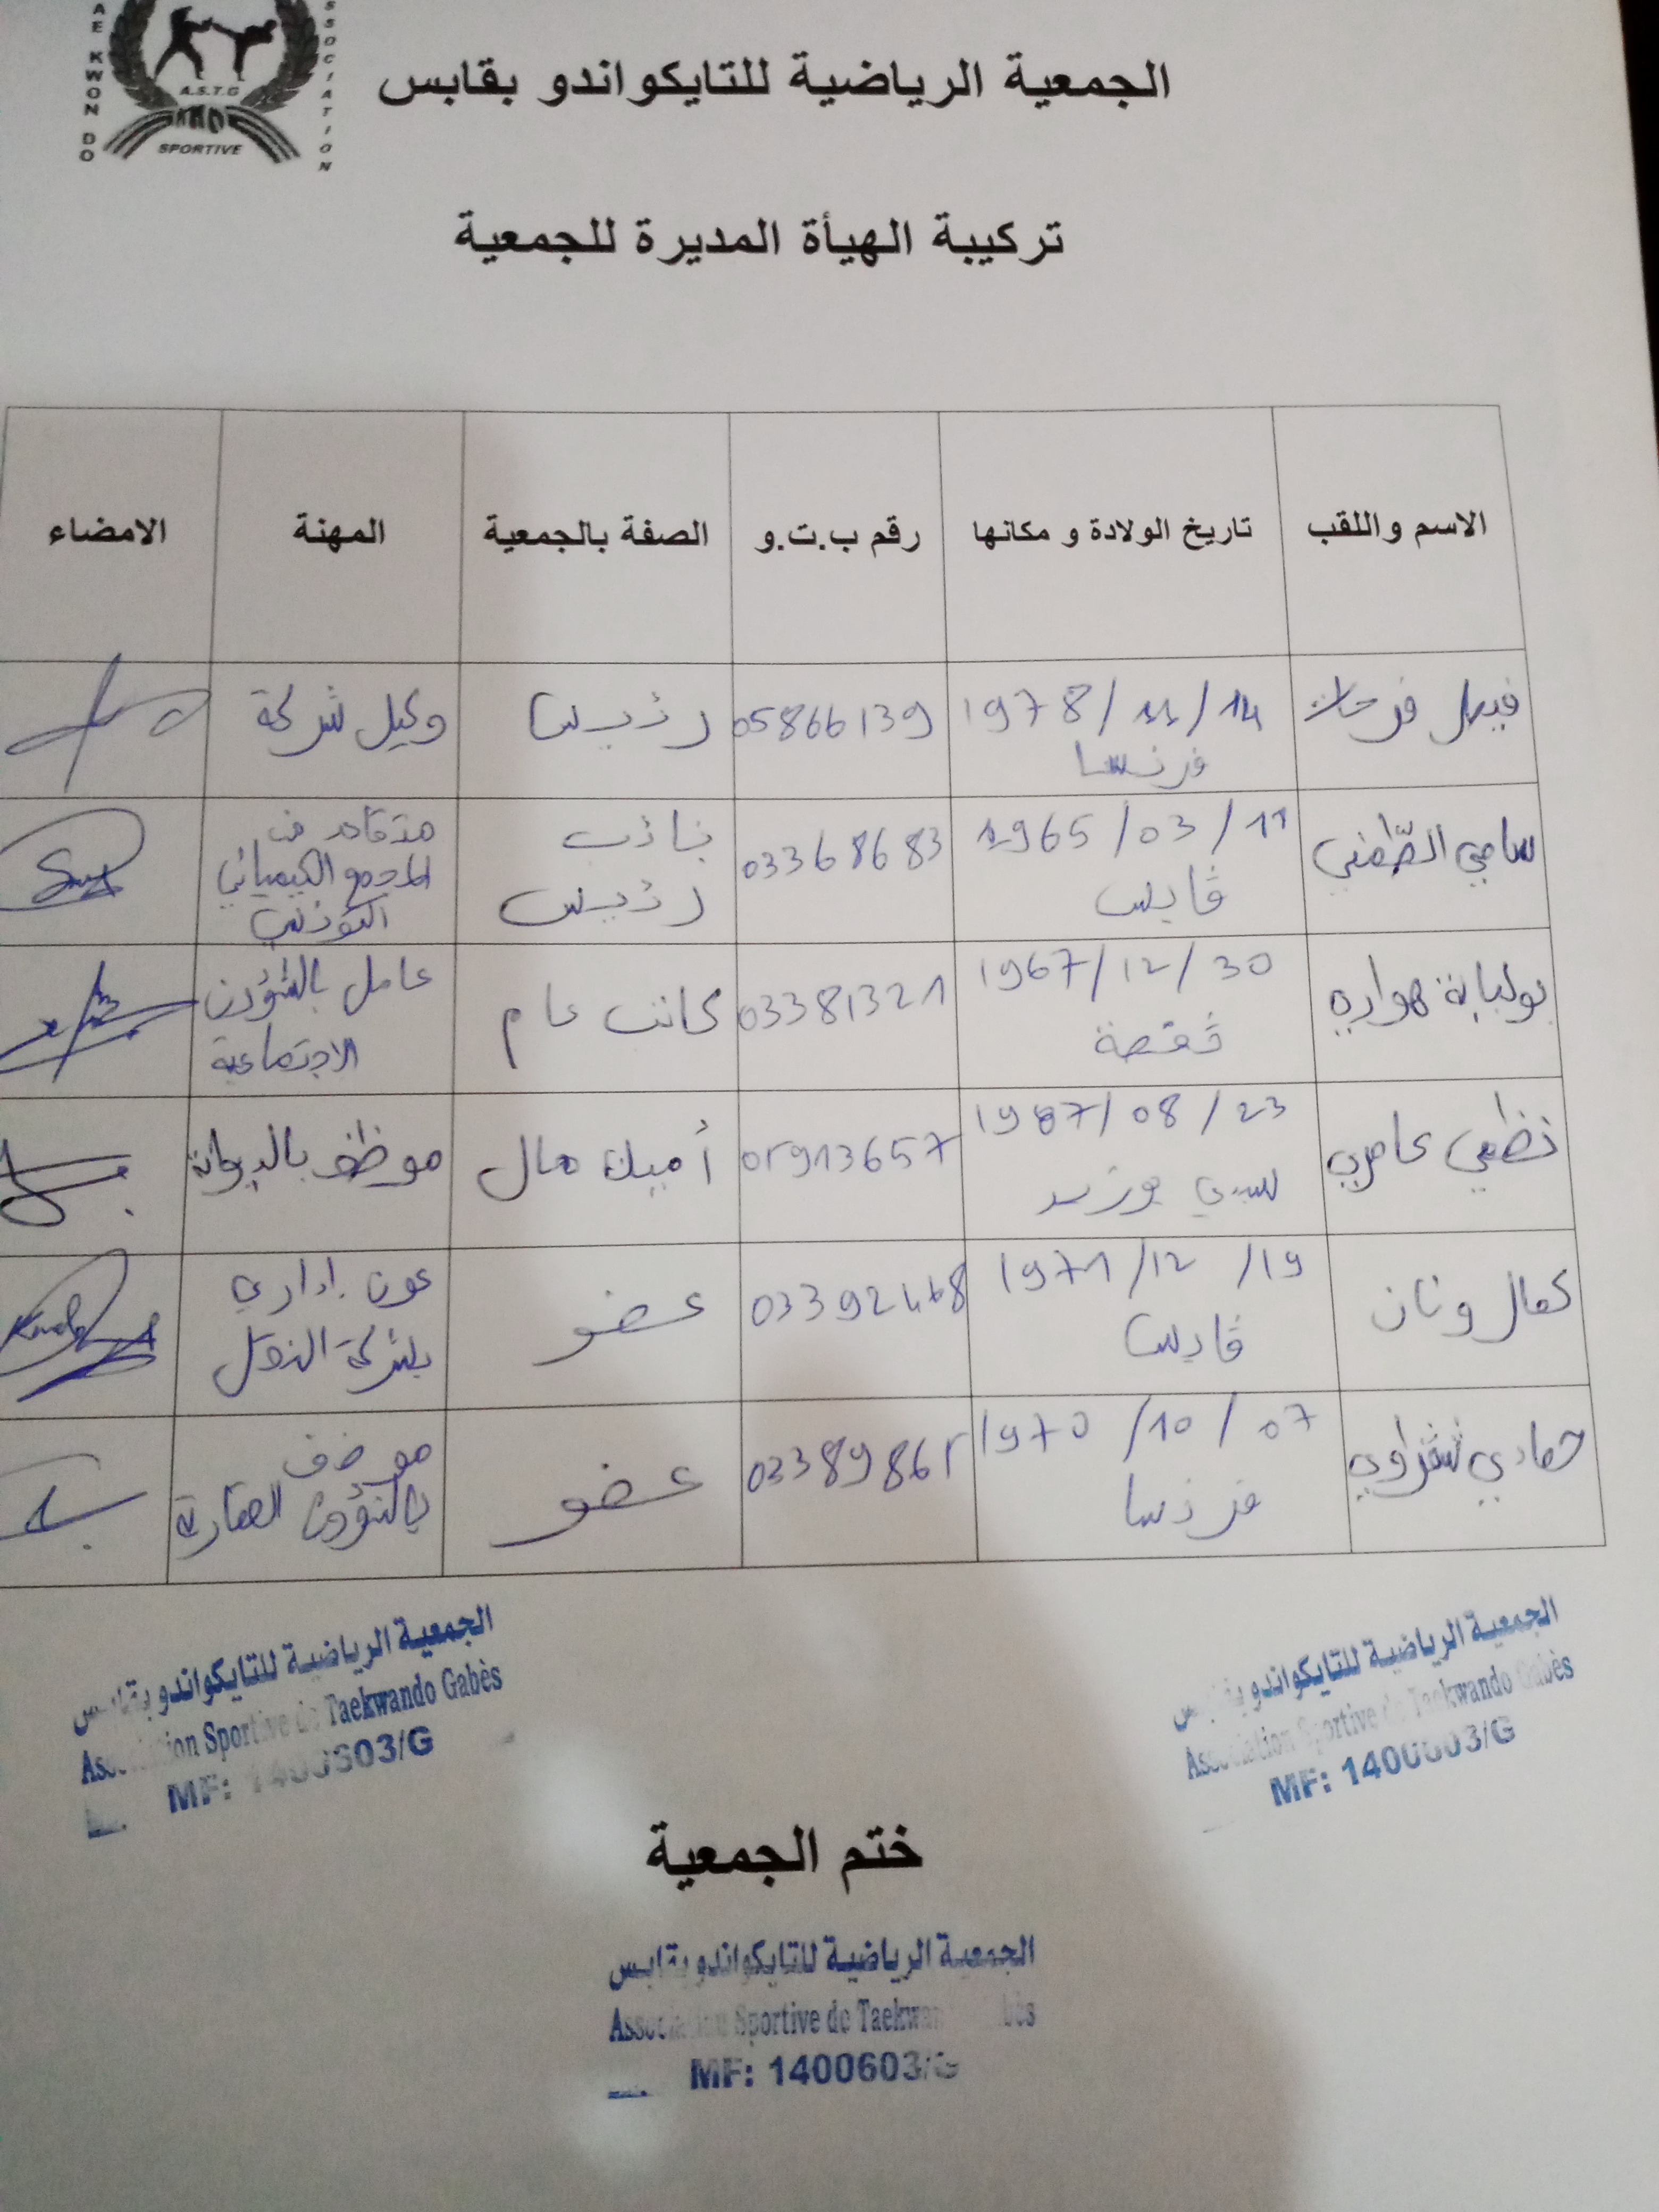 TAE KWON DO
ASSOCIATION
A.S.T.G
SPORTIVE
الجمعية الرياضية للتايكواندو بقابس
تركيبة الهيأة المديرة للجمعية
الاسم واللقب تاريخ الولادة و مكانها رقم ب.ت.و الصفة بالجمعية المهنة الامضاء
فيصل فرحات 1978/11/14 05866139 رئيس وكيل شركة
فرنسا
سامي 1965/03/11 03368683 نائب متقاعد من
ڨابس رئيس المجمع الكيميائي
التونسي
بولبابة هواري 1967/12/30 03381321 كاتب عام عامل بالشؤون
ڨفصة الاجتماعية
نظمي عامري 1987/08/23 أمين مال موظف بالديوانة
سيدي بوزيد
كمال ونان 1971/12/19 عضو عون إداري
ڨابس بشركة النقل
حمادي 1970/10/07 عضو موضف
فرنسا بالشؤون العقارية
الجمعية الرياضية للتايكواندو بقابس
Association Sportive de Taekwando Gabès
MF: 1400603/G
الجمعية الرياضية للتايكواندو بقابس
Association Sportive de Taekwando Gabès
MF: 1400603/G
ختم الجمعية
الجمعية الرياضية للتايكواندو بقابس
Association Sportive de Taekwando Gabès
MF: 1400603/G